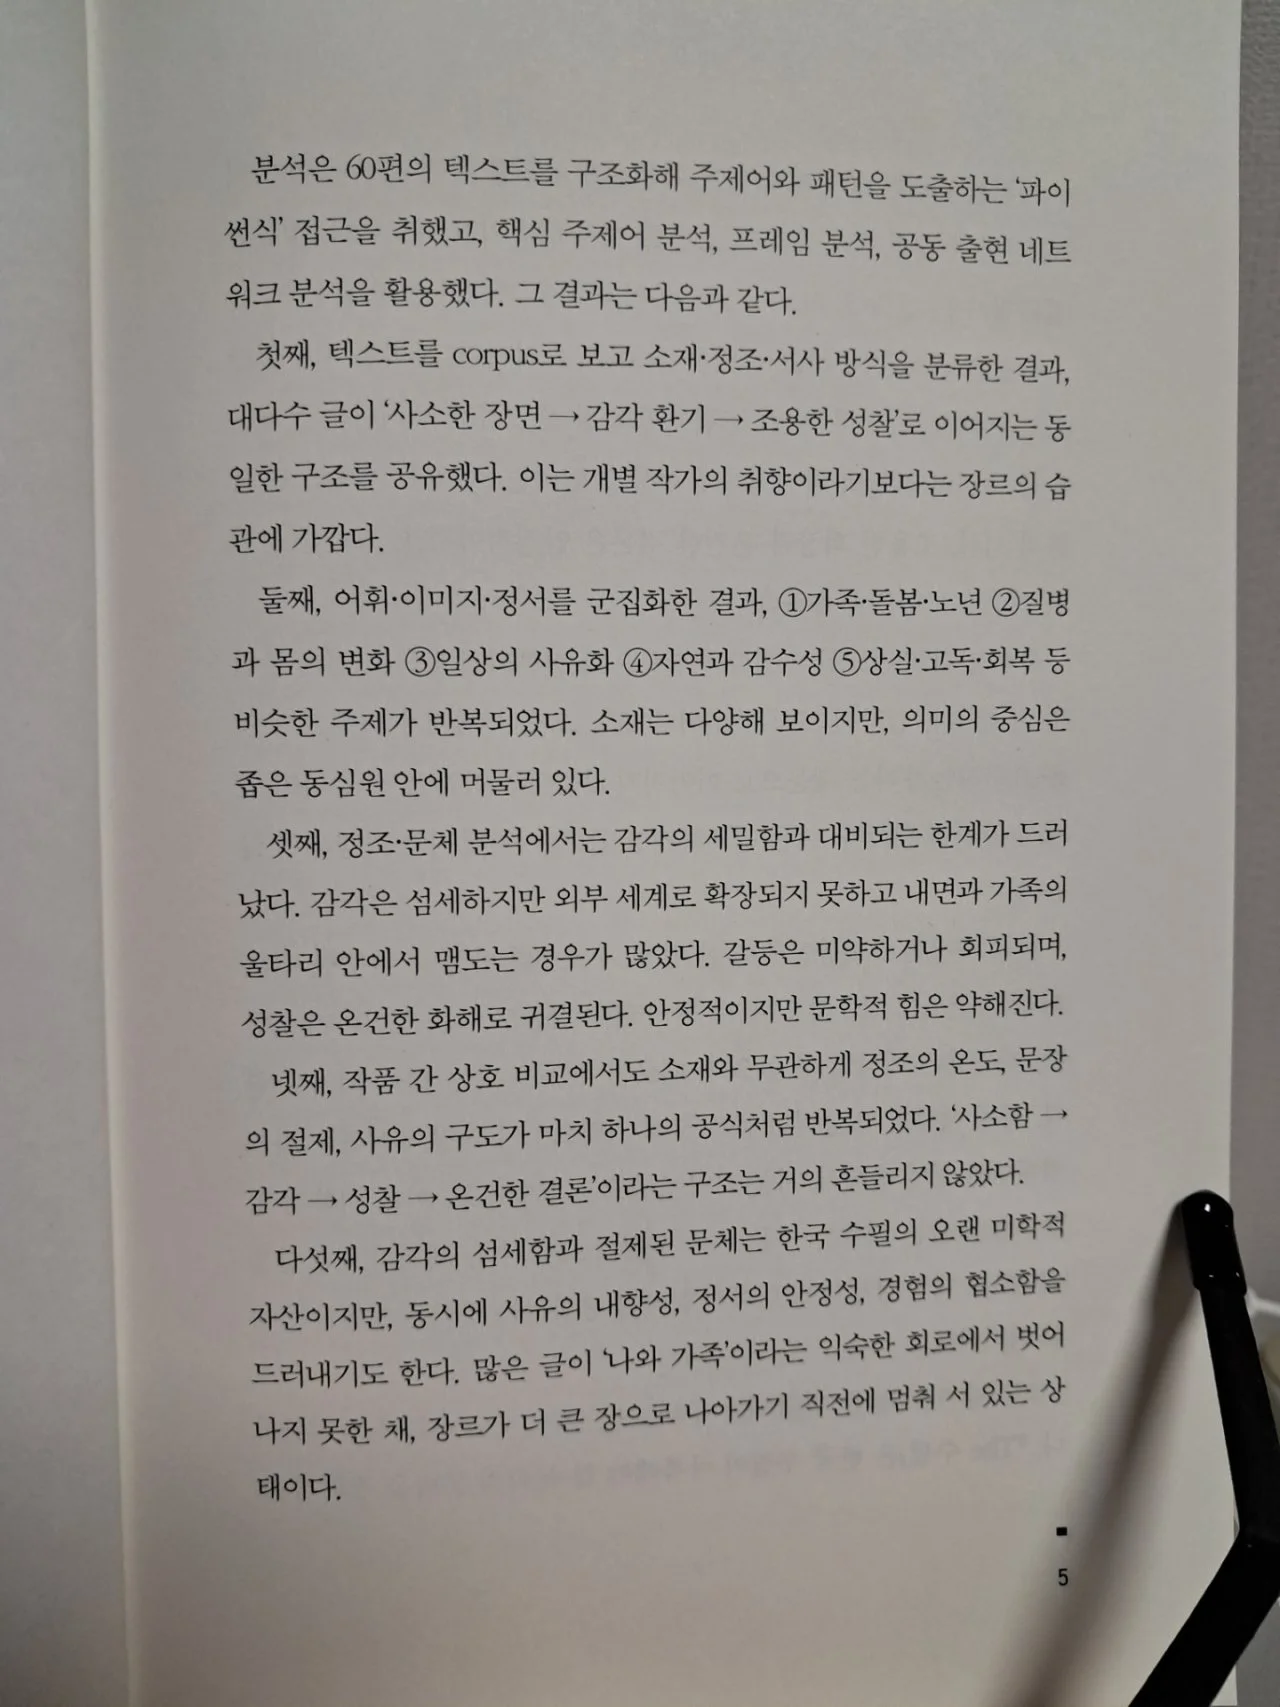 분석은 60편의 텍스트를 구조화해 주제어와 패턴을 도출하는 ‘파이
썬식’ 접근을 취했고, 핵심 주제어 분석, 프레임 분석, 공동 출현 네트
워크 분석을 활용했다. 그 결과는 다음과 같다.
첫째, 텍스트를 corpus로 보고 소재·정조·서사 방식을 분류한 결과,
대다수 글이 ‘사소한 장면 → 감각 환기 → 조용한 성찰’로 이어지는 동
일한 구조를 공유했다. 이는 개별 작가의 취향이라기보다는 장르의 습
관에 가깝다.
둘째, 어휘·이미지·정서를 군집화한 결과, ①가족·돌봄·노년 ②질병
과 몸의 변화 ③일상의 사유화 ④자연과 감수성 ⑤상실·고독·회복 등
비슷한 주제가 반복되었다. 소재는 다양해 보이지만, 의미의 중심은
좁은 동심원 안에 머물러 있다.
셋째, 정조·문체 분석에서는 감각의 세밀함과 대비되는 한계가 드러
났다. 감각은 섬세하지만 외부 세계로 확장되지 못하고 내면과 가족의
울타리 안에서 맴도는 경우가 많았다. 갈등은 미약하거나 회피되며,
성찰은 온건한 화해로 귀결된다. 안정적이지만 문학적 힘은 약해진다.
넷째, 작품 간 상호 비교에서도 소재와 무관하게 정조의 온도, 문장
의 절제, 사유의 구도가 마치 하나의 공식처럼 반복되었다. ‘사소함 →
감각 → 성찰 → 온건한 결론’이라는 구조는 거의 흔들리지 않았다.
다섯째, 감각의 섬세함과 절제된 문체는 한국 수필의 오랜 미학적
자산이지만, 동시에 사유의 내향성, 정서의 안정성, 경험의 협소함을
드러내기도 한다. 많은 글이 ‘나와 가족’이라는 익숙한 회로에서 벗어
나지 못한 채, 장르가 더 큰 장으로 나아가기 직전에 멈춰 서 있는 상
태이다.
5